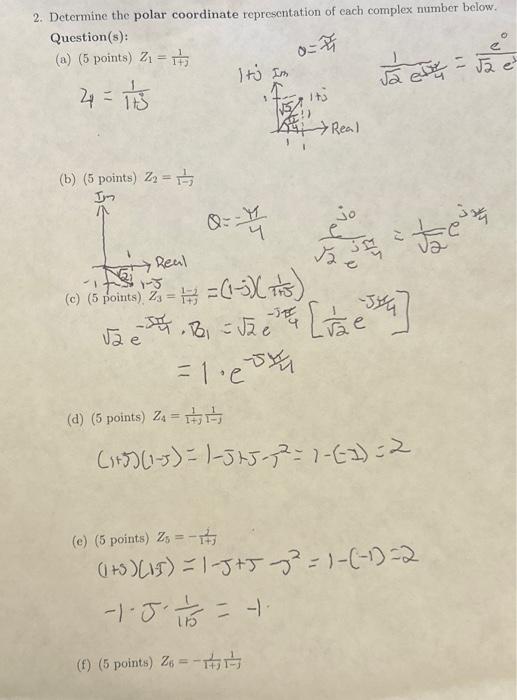 2. Determine the polar coordinate representation of each complex number below.
Question(s):
(a) (5 points) Z₁ = 1/(1+j)
θ = π/4
1/(√2 e^(jπ/4)) = e^0/(√2 e
1+j Im
Z₁ = 1/(1+j)
1 √2 1+j
π/4 1 Real
1
(b) (5 points) Z₂ = 1/(1-j)
Im
θ = -π/4
e^(j0)/(√2 e^(-jπ/4)) = 1/√2 e^(jπ/4)
1 Real
-1 √2 1-j
(c) (5 points) Z₃ = (1-j)/(1+j) = (1-j)(1/(1+j))
√2 e^(-jπ/4) · Z₁ = √2 e^(-jπ/4) [1/√2 e^(-jπ/4)]
= 1 · e^(-jπ/4)
(d) (5 points) Z₄ = 1/(1+j) 1/(1-j)
(1+j)(1-j) = 1-j+j-j² = 1-(-1) = 2
(e) (5 points) Z₅ = -j/(1+j)
(1+j)(1-j) = 1-j+j-j² = 1-(-1) = 2
-1 · j · 1/(1+j) = -1 ·
(f) (5 points) Z₆ = -j/(1+j) 1/(1-j)